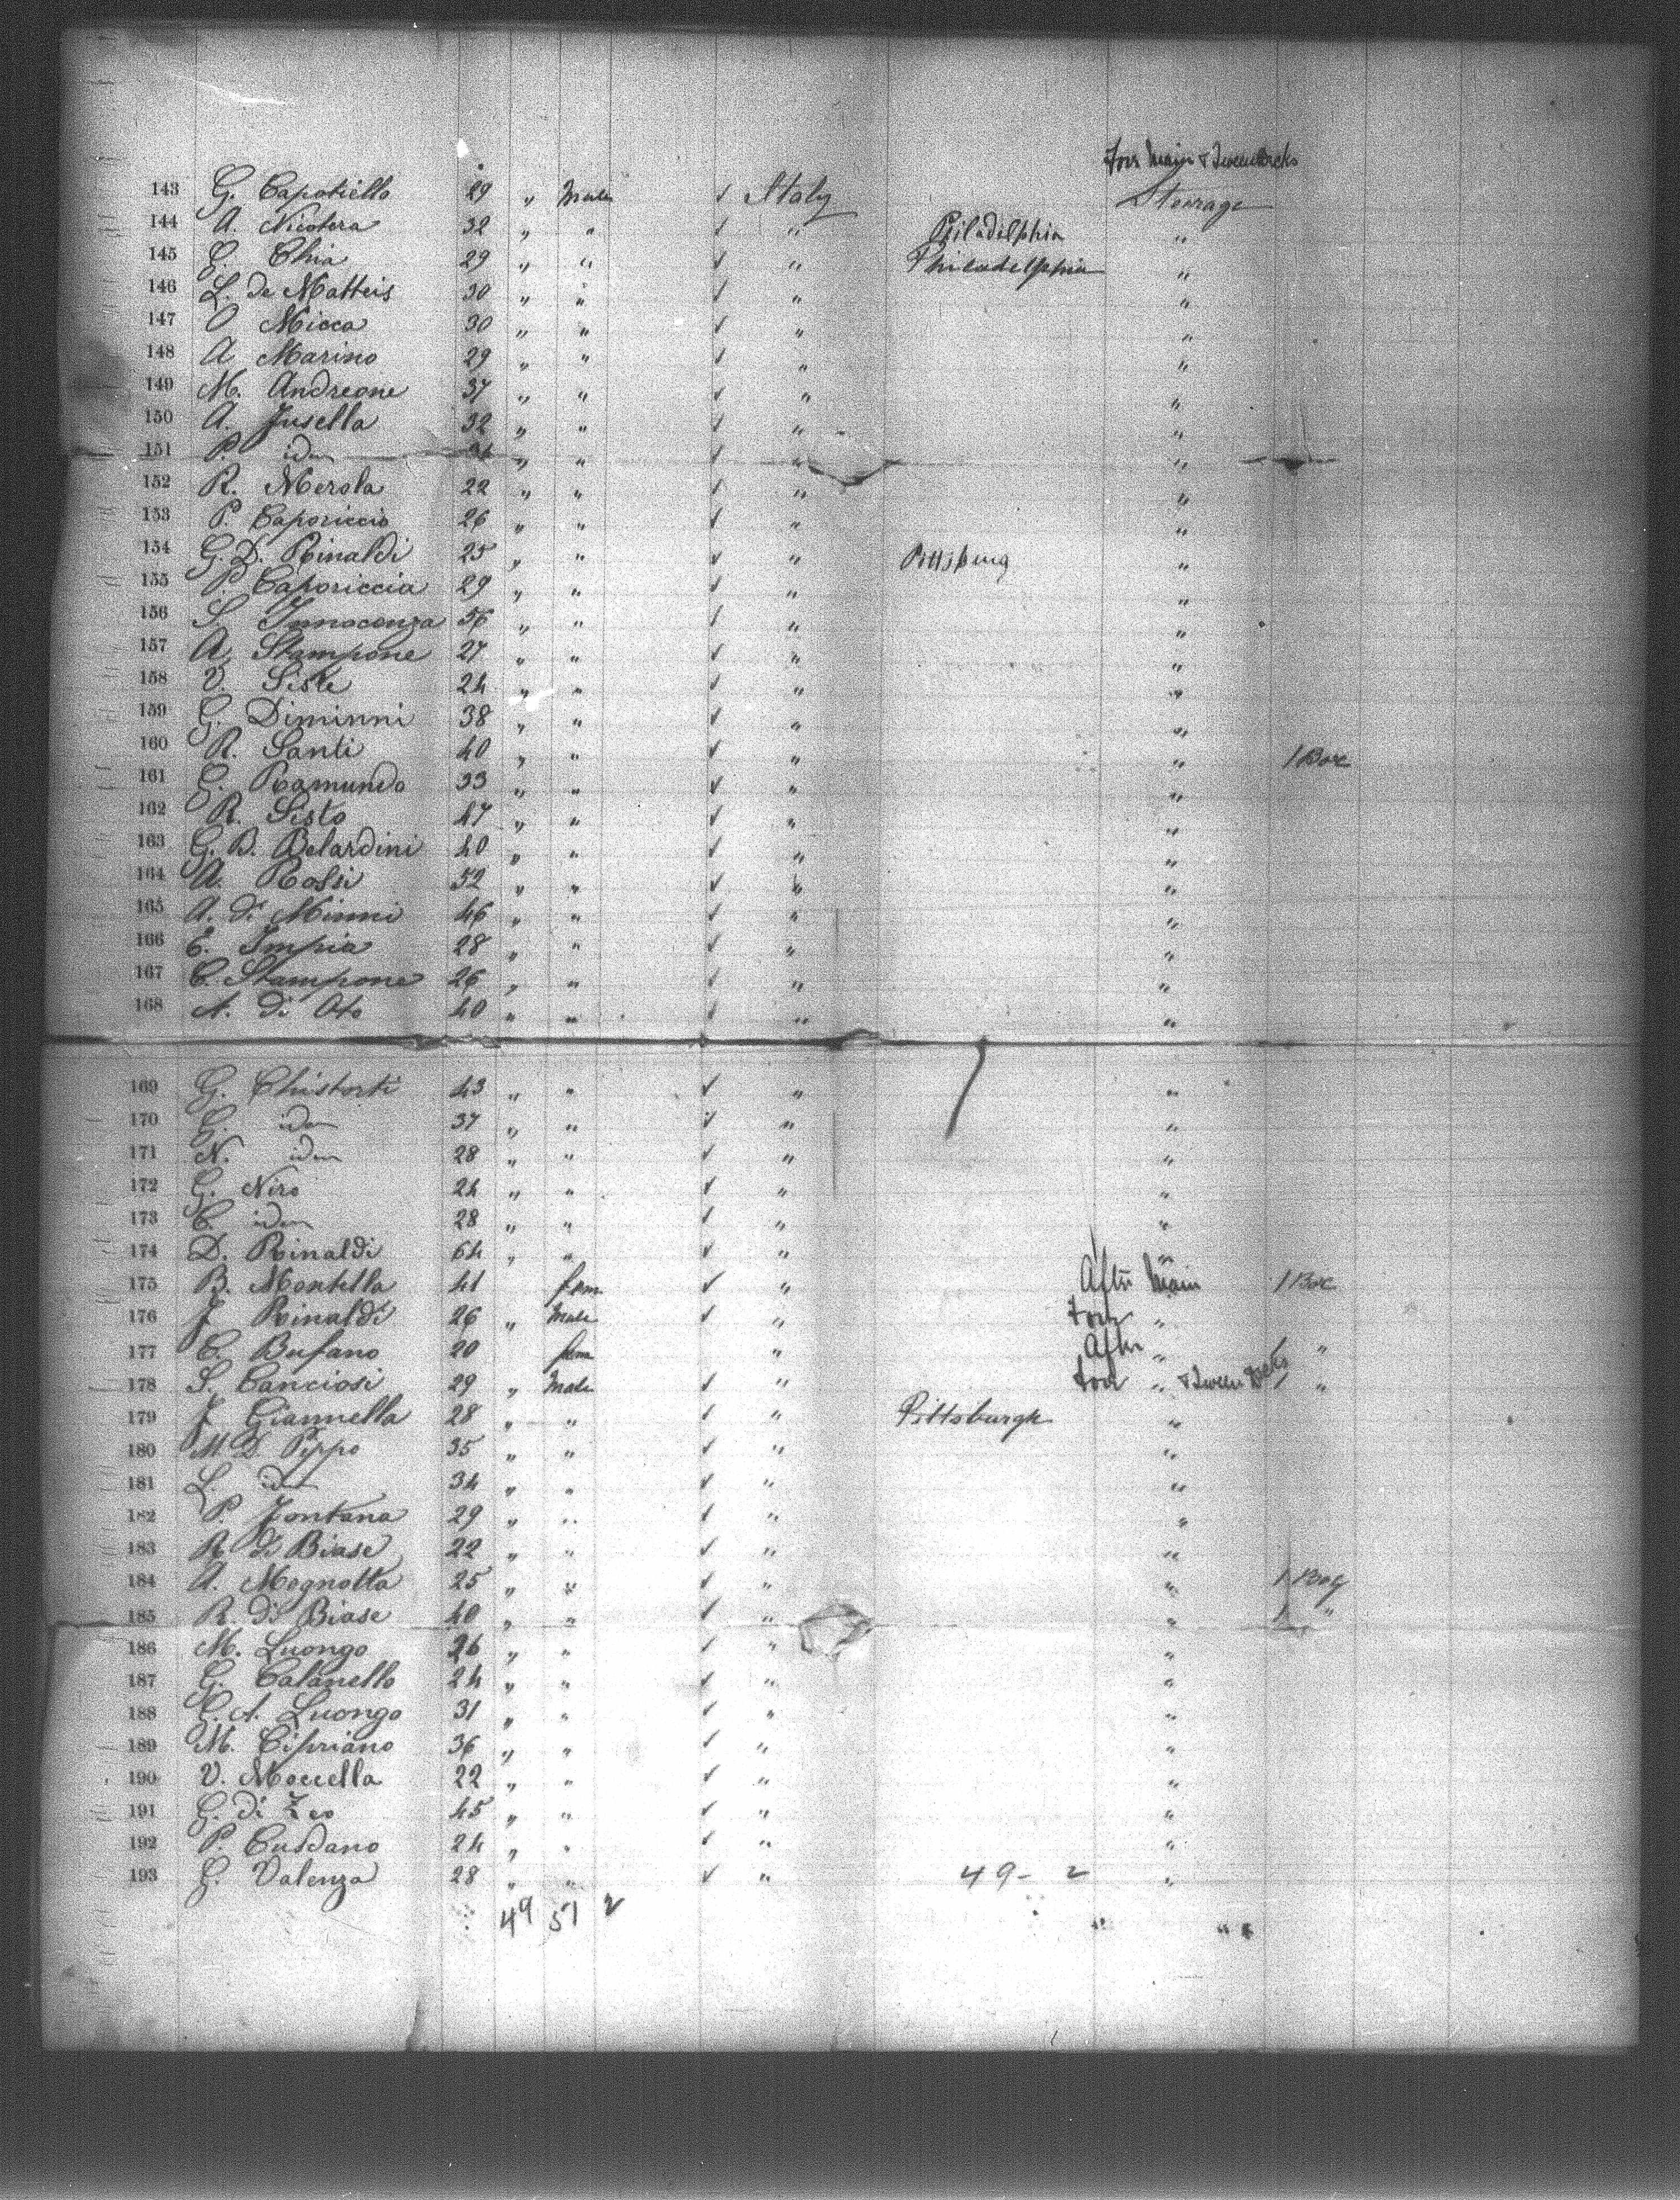 Forr Main & Tween Decks
143 G. Capotiello 29 " Male ✓ Italy Steerage
144 A. Nicotera 32 " " ✓ " Philadelphia "
145 C. Chia 29 " " ✓ " Philadelphia "
146 L. de Matteis 30 " " ✓ " "
147 O Micca 30 " " ✓ " "
148 A Marino 29 " " ✓ " "
149 M. Andreone 37 " " ✓ " "
150 A. Fusella 32 " " ✓ " "
151 P. idem " " ✓ " "
152 R. Merola 22 " " ✓ " "
153 P. Caporiccio 26 " " ✓ " "
154 G. D. Rinaldi 25 " " ✓ " Pittsburg "
155 P. Caporiccia 29 " " ✓ " "
156 S. Innocenza 56 " " ✓ " "
157 A. Stampone 27 " " ✓ " "
158 V. Siste 24 " " ✓ " "
159 G. Diminni 38 " " ✓ " "
160 R. Santi 40 " " ✓ " " 1 Box
161 G. Ramundo 33 " " ✓ " "
162 R. Sisto 47 " " ✓ " "
163 G. B. Belardini 40 " " ✓ " "
164 A. Rossi 52 " " ✓ " "
165 A. di Minni 46 " " ✓ " "
166 E. Impia 28 " " ✓ " "
167 C. Stampone 26 " " ✓ " "
168 A. di Oto 40 " " ✓ " "
169 G. Chistorti 43 " " ✓ " "
170 C. idem 37 " " ✓ " "
171 N. idem 28 " " ✓ " "
172 G. Niro 24 " " ✓ " "
173 C. idem 28 " " ✓ " "
174 D. Rinaldi 64 " " ✓ " "
175 B. Montella 41 fem ✓ " After Main 1 Box
176 F Rinaldi 26 " Male ✓ " Forr "
177 C. Bufano 20 fem " After " 1 "
178 S. Canciosi 29 " Male ✓ " Forr " & Tween Decks 1 "
179 F Giannella 28 " " ✓ " Pittsburgh "
180 M. D. Pippo 35 " " ✓ " "
181 L. idem 34 " " ✓ " "
182 P. Fontana 29 " " ✓ " "
183 R. di Biase 22 " " ✓ " "
184 A. Mognotta 25 " " ✓ " " 1 Bag
185 R. di Biase 40 " " ✓ " " 1 "
186 M. Luongo 26 " " ✓ " "
187 G. Calanello 24 " " ✓ " "
188 C. A. Luongo 31 " " ✓ " "
189 M. Cipriano 36 " " ✓ " "
190 V. Moccella 22 " " ✓ " "
191 G. di Zeo 45 " " ✓ " "
192 P. Cusdano 24 " " ✓ " "
193 G. Valenza 28 " " ✓ " 49 - 2 "
49 51 2